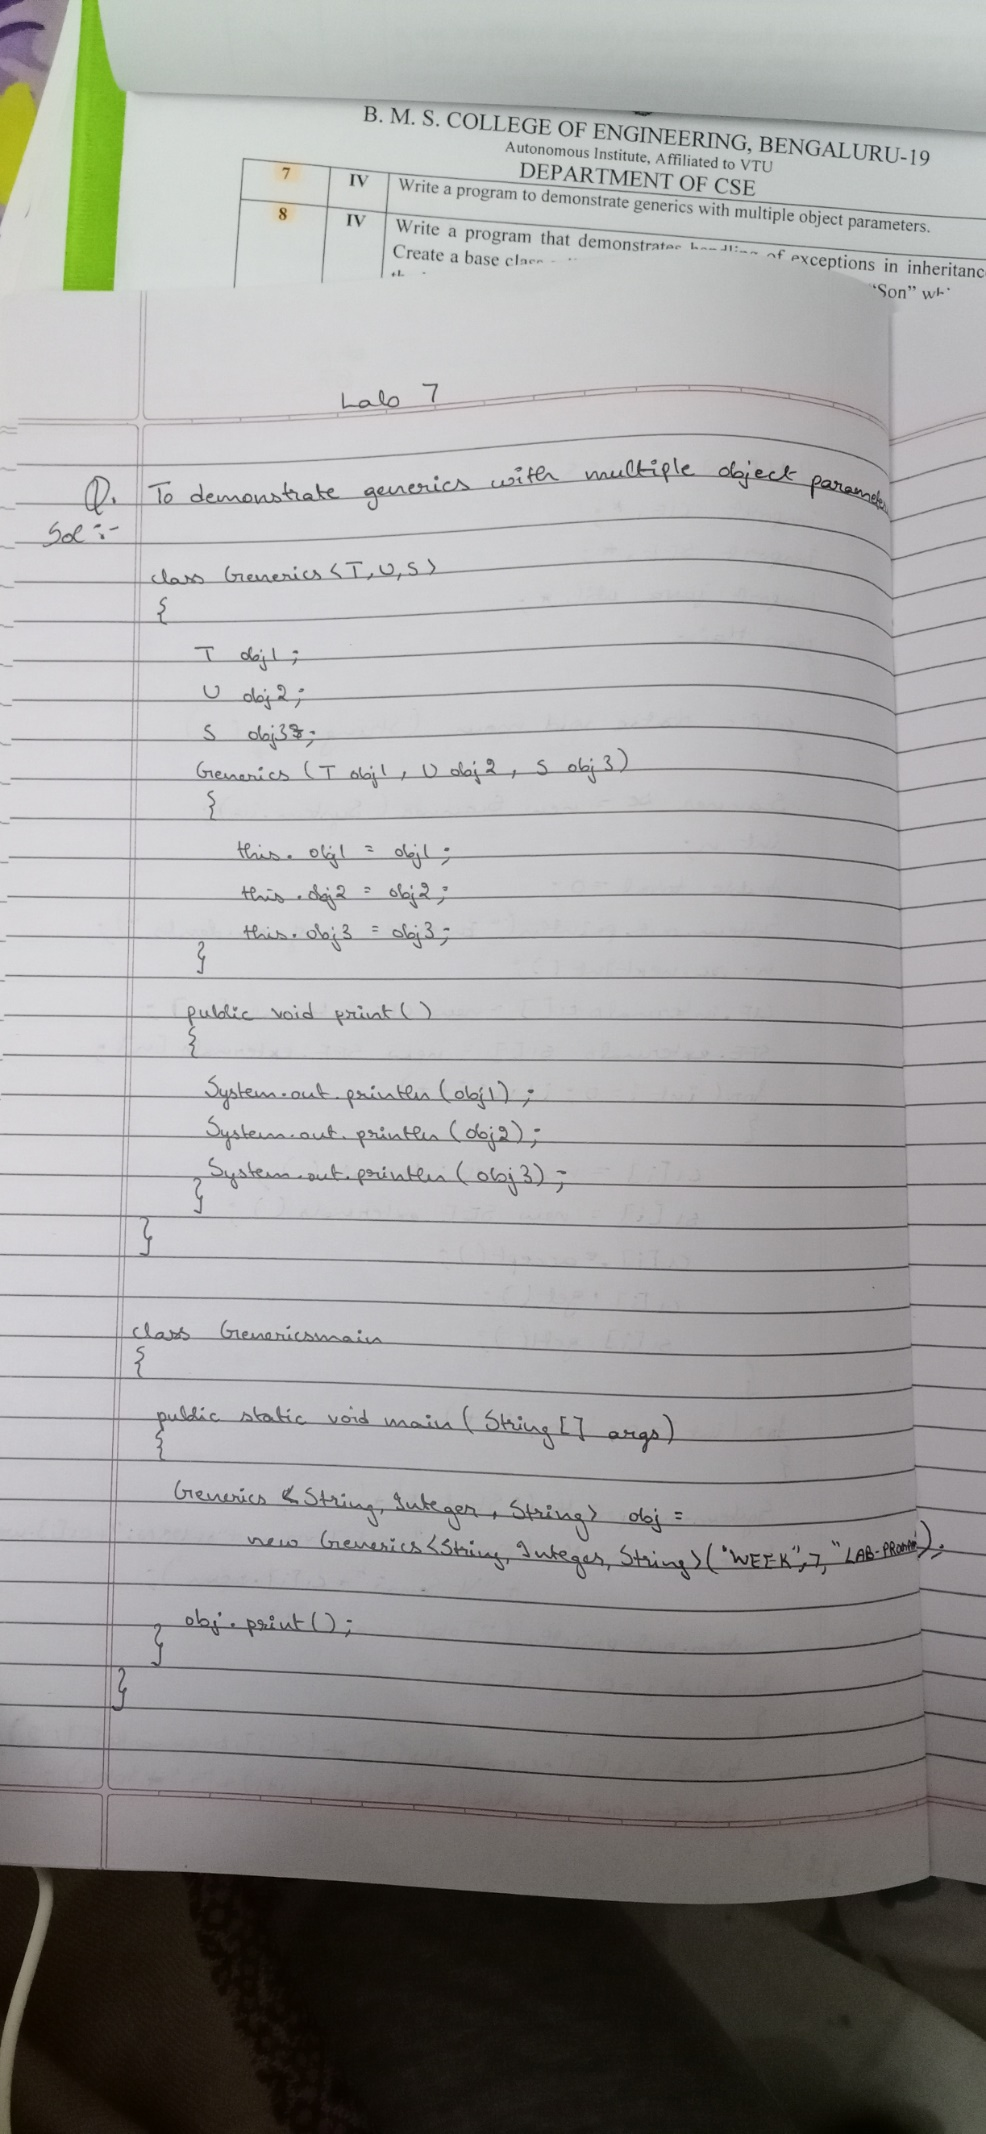 B. M. S. COLLEGE OF ENGINEERING, BENGALURU-19
Autonomous Institute, Affiliated to VTU
DEPARTMENT OF CSE
7 IV Write a program to demonstrate generics with multiple object parameters.
8 IV Write a program that demonstrates handling of exceptions in inheritanc
Create a base class
"Son" wh
Lab 7
Q. To demonstrate generics with multiple object paramete
Sol :-
class Generics <T, U, S>
{
T obj1 ;
U obj2 ;
S obj3 ;
Generics (T obj1 , U obj2 , S obj3)
{
this. obj1 = obj1 ;
this. obj2 = obj2 ;
this. obj3 = obj3 ;
}
public void print ( )
{
System.out.println (obj1) ;
System.out.println (obj2) ;
System.out.println (obj3) ;
}
}
class Genericsmain
{
public static void main ( String [] args )
{
Generics <String, Integer, String> obj =
new Generics <String, Integer, String> ("WEEK", 7, "LAB-);
obj.print () ;
}
}